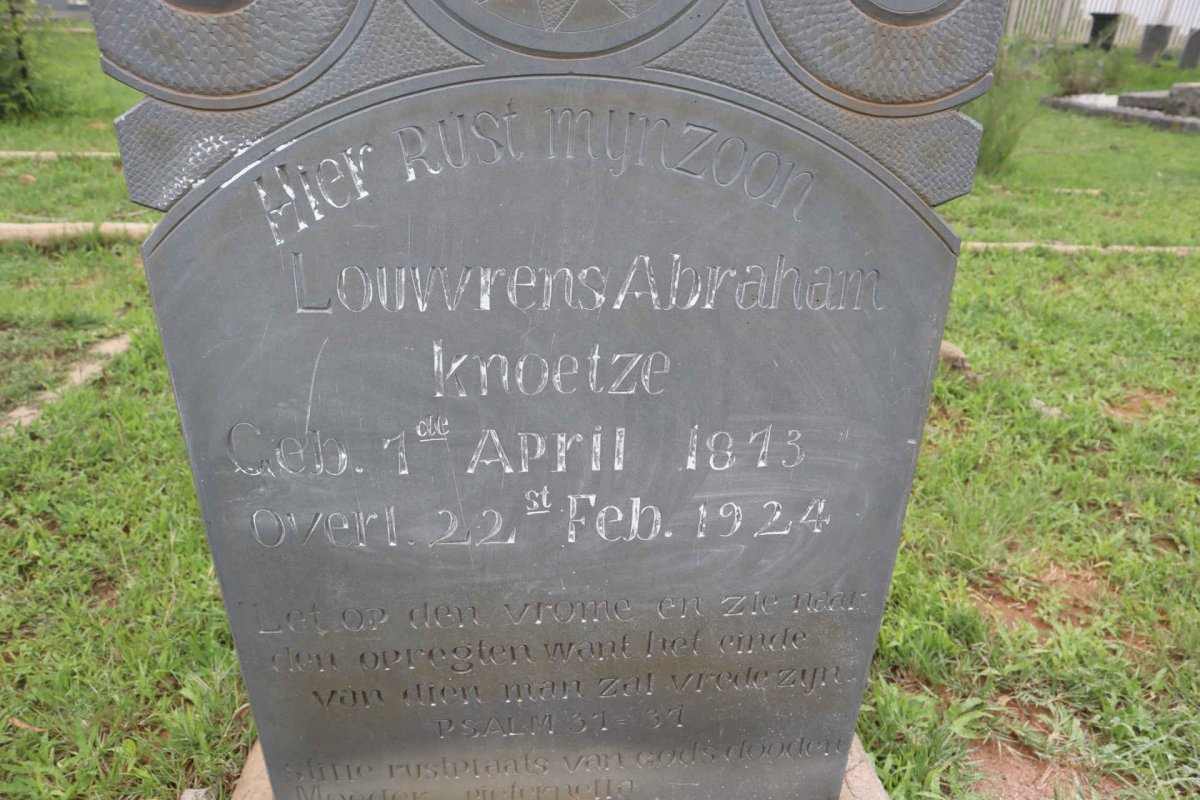 Hier Rust mijn zoon
Louwrens Abraham
Knoetze
Geb. 1de April 1873
Overl. 22st Feb. 1924
Let op den vrome en zie naar
den opregten want het einde
van dien man zal vrede zyn.
PSALM 37=37
Stille rustplaats van God's dooden
Moeder